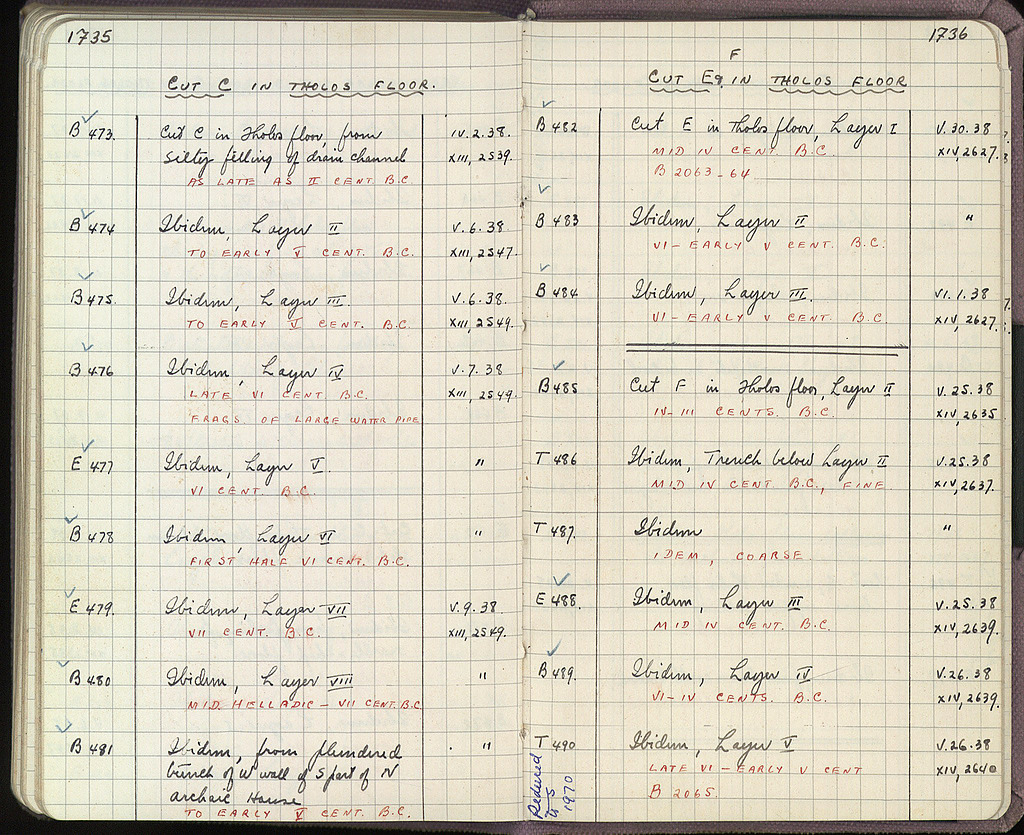 1735
CUT C IN THOLOS FLOOR.
B 473. Cut C in Tholos floor, from IV.2.38.
silty filling of drain channel XIII, 2539.
AS LATE AS II CENT. B.C.
B 474 Ibidem, Layer II V.6.38.
TO EARLY V CENT. B.C. XIII, 2547.
B 475. Ibidem, Layer III. V.6.38.
TO EARLY V CENT. B.C. XIII, 2549.
B 476 Ibidem, Layer IV V.7.38
LATE VI CENT. B.C. XIII, 2549.
FRAGS. OF LARGE WATER PIPE
E 477 Ibidem, Layer V. "
VI CENT. B.C.
B 478 Ibidem, Layer VI "
FIRST HALF VI CENT. B.C.
E 479. Ibidem, Layer VII V.9.38
VII CENT. B.C. XIII, 2549.
B 480 Ibidem, Layer VIII "
MID. HELLADIC - VII CENT. B.C.
B 481 Ibidem, from plundered "
trench of W wall of S part of N
archaic House
TO EARLY V CENT. B.C.
1736
F
CUT E9 IN THOLOS FLOOR
B 482 Cut E in Tholos floor, Layer I V.30.38
MID IV CENT. B.C. XIV, 2627.
B 2063-64
B 483 Ibidem, Layer II "
VI - EARLY V CENT. B.C.
B 484 Ibidem, Layer III. VI.1.38
VI - EARLY V CENT. B.C XIV, 2627.
B 485 Cut F in Tholos floor, Layer II V.25.38
IV-III CENTS. B.C. XIV, 2635
T 486 Ibidem, Trench below Layer II V.25.38
MID IV CENT. B.C., FINE XIV, 2637.
T 487. Ibidem "
IDEM, COARSE.
E 488. Ibidem, Layer III V.25.38
MID IV CENT. B.C. XIV, 2639.
B 489. Ibidem, Layer IV V.26.38
VI-IV CENTS. B.C. XIV, 2639.
T 490 Ibidem, Layer V V.26.38
LATE VI - EARLY V CENT XIV, 2640
B 2065.
Reduced
1970